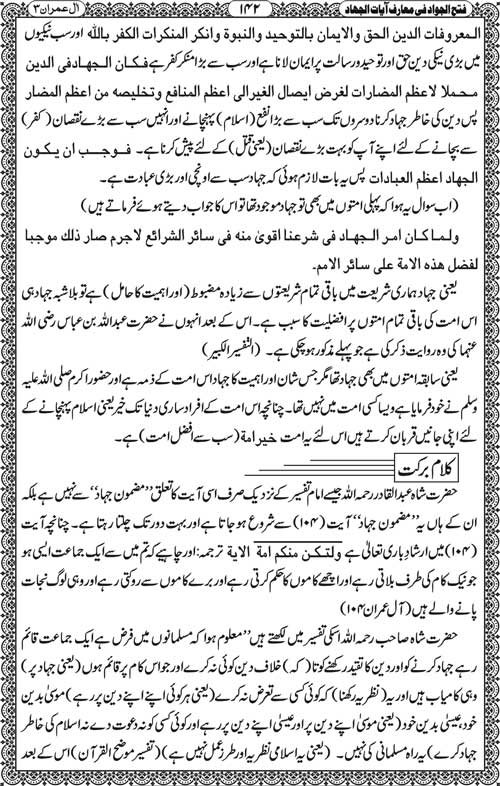 فتح الجواد فی معارف آیات الجهاد ۱۴۲ آل عمران ۳
المعروفات الدین الحق والایمان بالتوحید والنبوة وانکر المنکرات الکفر باللہ اور سب نیکیوں
میں بڑی نیکی دین حق اور توحید و رسالت پر ایمان لانا ہے اور سب سے بڑا منکر کفر ہے فکان الجهاد فی الدین
محملا لاعظم المضارات لغرض ایصال الغیر الی اعظم المنافع وتخلیصه من اعظم المضار
پس دین کی خاطر جہاد کرنا دوسروں تک سب سے بڑا نفع (اسلام) پہنچانے اور انہیں سب سے بڑے نقصان (کفر)
سے بچانے کے لئے اپنے آپ کو بہت بڑے نقصان (یعنی قتل) کے لئے پیش کرنا ہے۔ فوجب ان یکون
الجهاد اعظم العبادات پس یہ بات لازم ہوئی کہ جہاد سب سے اونچی اور بڑی عبادت ہے۔
(اب سوال یہ ہوا کہ پہلی امتوں میں بھی تو جہاد موجود تھا تو اس کا جواب دیتے ہوئے فرماتے ہیں)
ولما کان امر الجهاد فی شرعنا اقویٰ منه فی سائر الشرائع لاجرم صار ذلك موجبا
لفضل هذه الامة علی سائر الامم۔
یعنی جہاد ہماری شریعت میں باقی تمام شریعتوں سے زیادہ مضبوط (اور اہمیت کا حامل) ہے تو بلاشبہ جہاد ہی
اس امت کی باقی تمام امتوں پر افضلیت کا سبب ہے۔ اس کے بعد انہوں نے حضرت عبداللہ بن عباس رضی اللہ
عنہما کی وہ روایت ذکر کی ہے جو پہلے مذکور ہو چکی ہے۔ (التفسیر الکبیر)
یعنی سابقہ امتوں میں بھی جہاد تھا مگر جس شان اور اہمیت کا جہاد اس امت کے ذمہ ہے اور حضور اکرم صلی اللہ علیہ
وسلم نے خود فرمایا ہے ویسا کسی امت میں نہیں تھا۔ چنانچہ اس امت کے افراد ساری دنیا تک خیر یعنی اسلام پہنچانے کے
لئے اپنی جانیں قربان کرتے ہیں اس لئے یہ امت خیر امة (سب سے افضل امت) ہے۔
کلام برکت
حضرت شاہ عبدالقادر رحمہ اللہ جیسے امام تفسیر کے نزدیک صرف اسی آیت کا تعلق ”مضمون جہاد“ سے نہیں ہے بلکہ
ان کے ہاں یہ ”مضمون جہاد“ آیت (۱۰۴) سے شروع ہو جاتا ہے اور بہت دور تک چلتا رہتا ہے۔ چنانچہ آیت
(۱۰۴) میں ارشاد باری تعالیٰ ہے ولتکن منکم امة الایة ترجمہ: اور چاہیے کہ تم میں سے ایک جماعت ایسی ہو
جو نیک کام کی طرف بلاتی رہے اور اچھے کاموں کا حکم کرتی رہے اور برے کاموں سے روکتی رہے اور وہی لوگ نجات
پانے والے ہیں (آل عمران ۱۰۴)
حضرت شاہ صاحب رحمہ اللہ اسکی تفسیر میں لکھتے ہیں ”معلوم ہوا کہ مسلمانوں میں فرض ہے ایک جماعت قائم
رہے جہاد کرنے کو اور دین کا تقید رکھنے کو تا (کہ) خلاف دین کوئی نہ کرے اور جو اس کام پر قائم ہوں (یعنی جہاد پر)
وہی کامیاب ہیں اور یہ (نظریہ رکھنا) کہ کوئی کسی سے تعرض نہ کرے (یعنی ہر کوئی اپنے اپنے دین پر رہے) موسیٰ بدین
خود، عیسیٰ بدین خود (یعنی موسیٰ اپنے دین پر اور عیسیٰ اپنے دین پر رہے اور کوئی کسی کو نہ دعوت دے نہ اسلام کی خاطر
جہاد کرے) یہ راہ مسلمانی کی نہیں۔ (یعنی یہ اسلامی نظریہ اور طرز عمل نہیں ہے) (تفسیر موضح القرآن) اس کے بعد